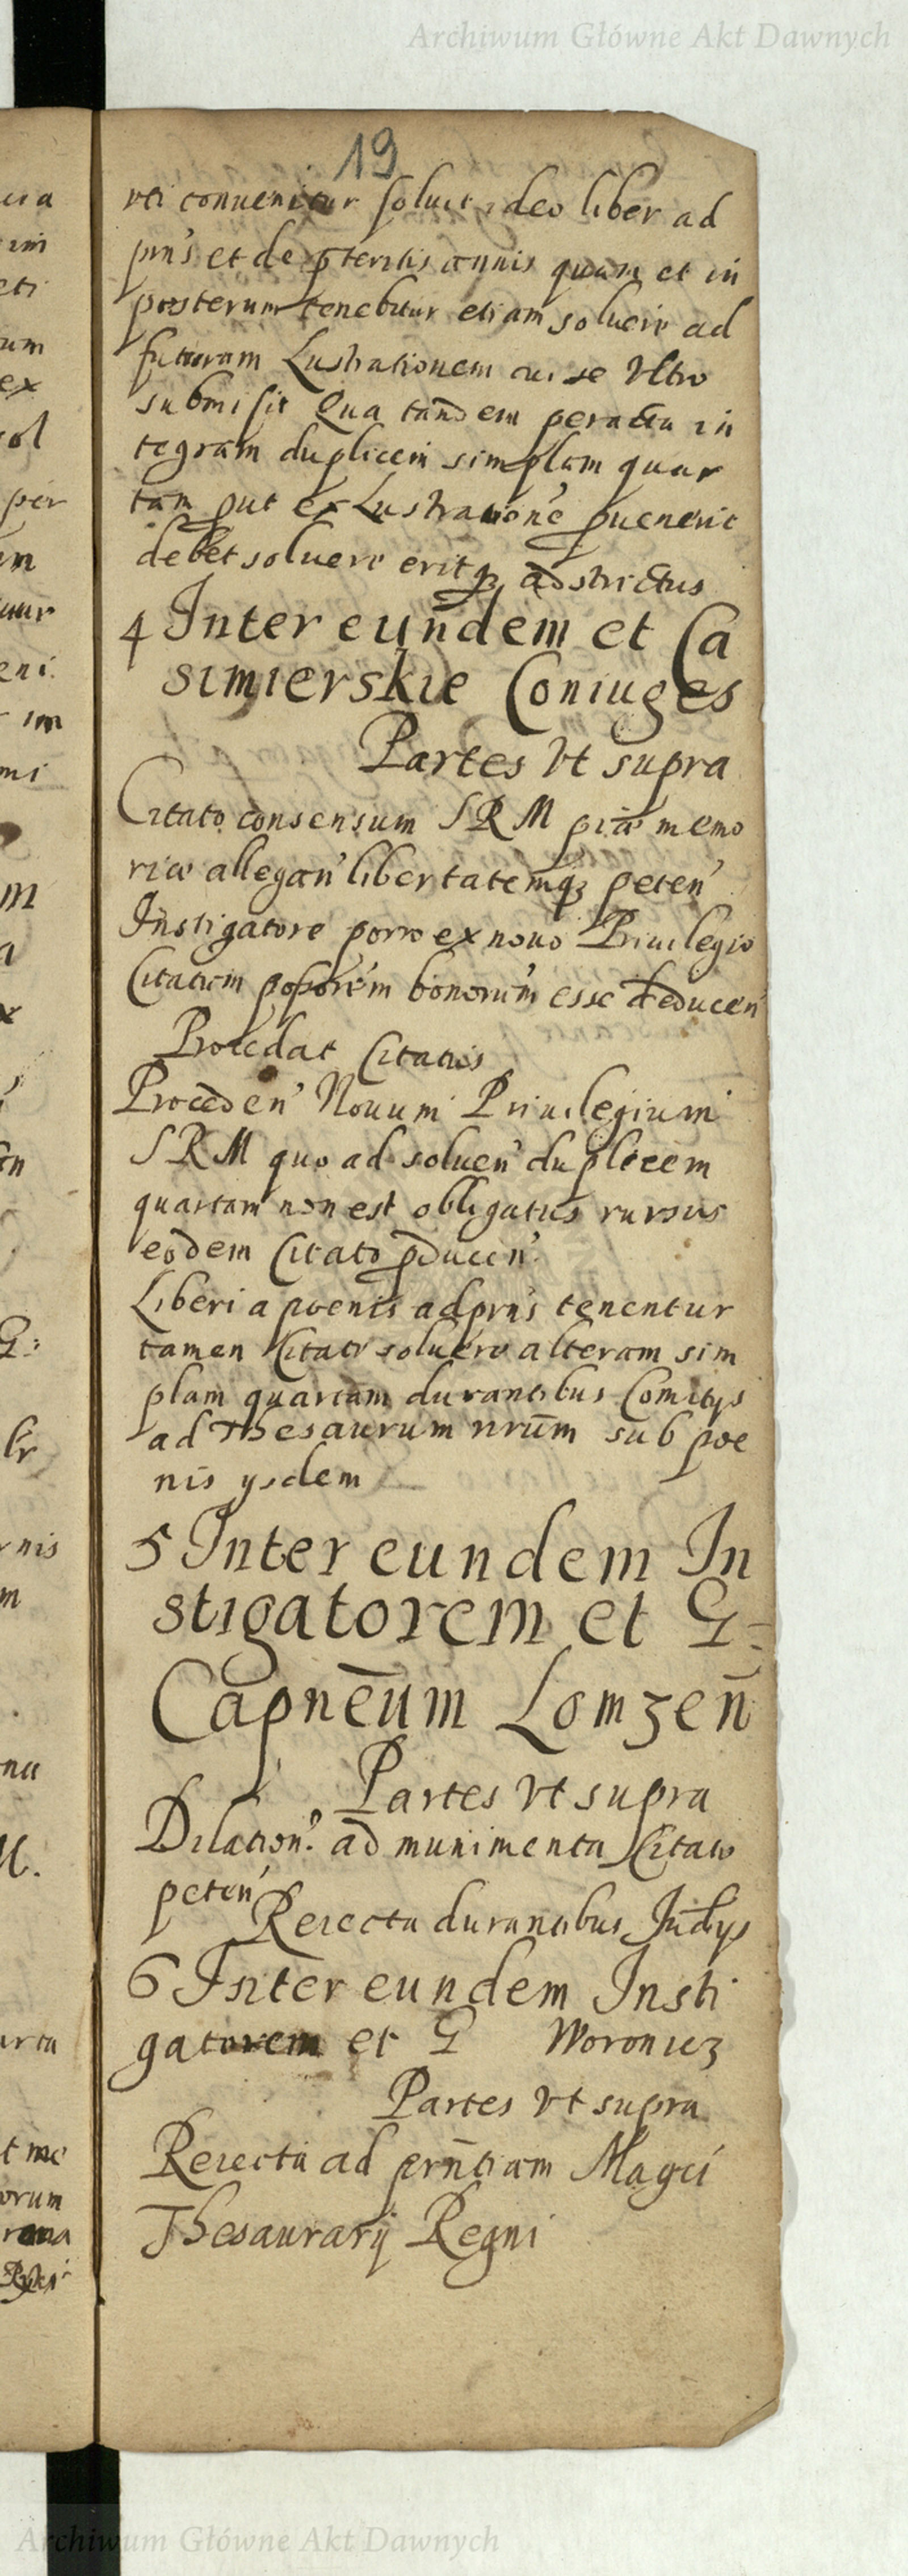 Archiwum Główne Akt Dawnych
19
rei conuenitur soluit ideo liber ad
pns et de pteritis annis quam et in
posterum tenebitur etiam soluere ad
futuram Lustrationem cui se Vltro
submisit Qua tandem peracta in
tegram duplicem simplam quar
tam put ex Lustratione puenerit
debet soluere eritqz adstrictus
4 Inter eundem et Ca
simierskie Coniuges
Partes Vt supra
Citato consensum SRM piæ memo
riæ allegan' libertatemqz peten'
Instigatore porro ex nouo Priuilegio
Citatum possorem bonorum esse deducen'
Procedat Citatus
Proceden' Nouum Priuilegium
SRM quo ad soluen' duplicem
quartam non est obligatus rursus
eodem Citato pducen'
Liberi a poenis ad pns tenentur
tamen Citati soluere alteram sim
plam quartam durantibus Comitys
ad Thesaurum nrum sub poe
nis ysdem
5 Inter eundem In
stigatorem et G:
Capneum Lomzen
Partes Vt supra
Dilation: ad munimenta Citato
peten'
Reiecta durantibus Judys
6 Inter eundem Insti
gatorem et G Woronicz
Partes Vt supra
Reiecta ad prntiam Magci
Thesaurarij Regni
Archiwum Główne Akt Dawnych